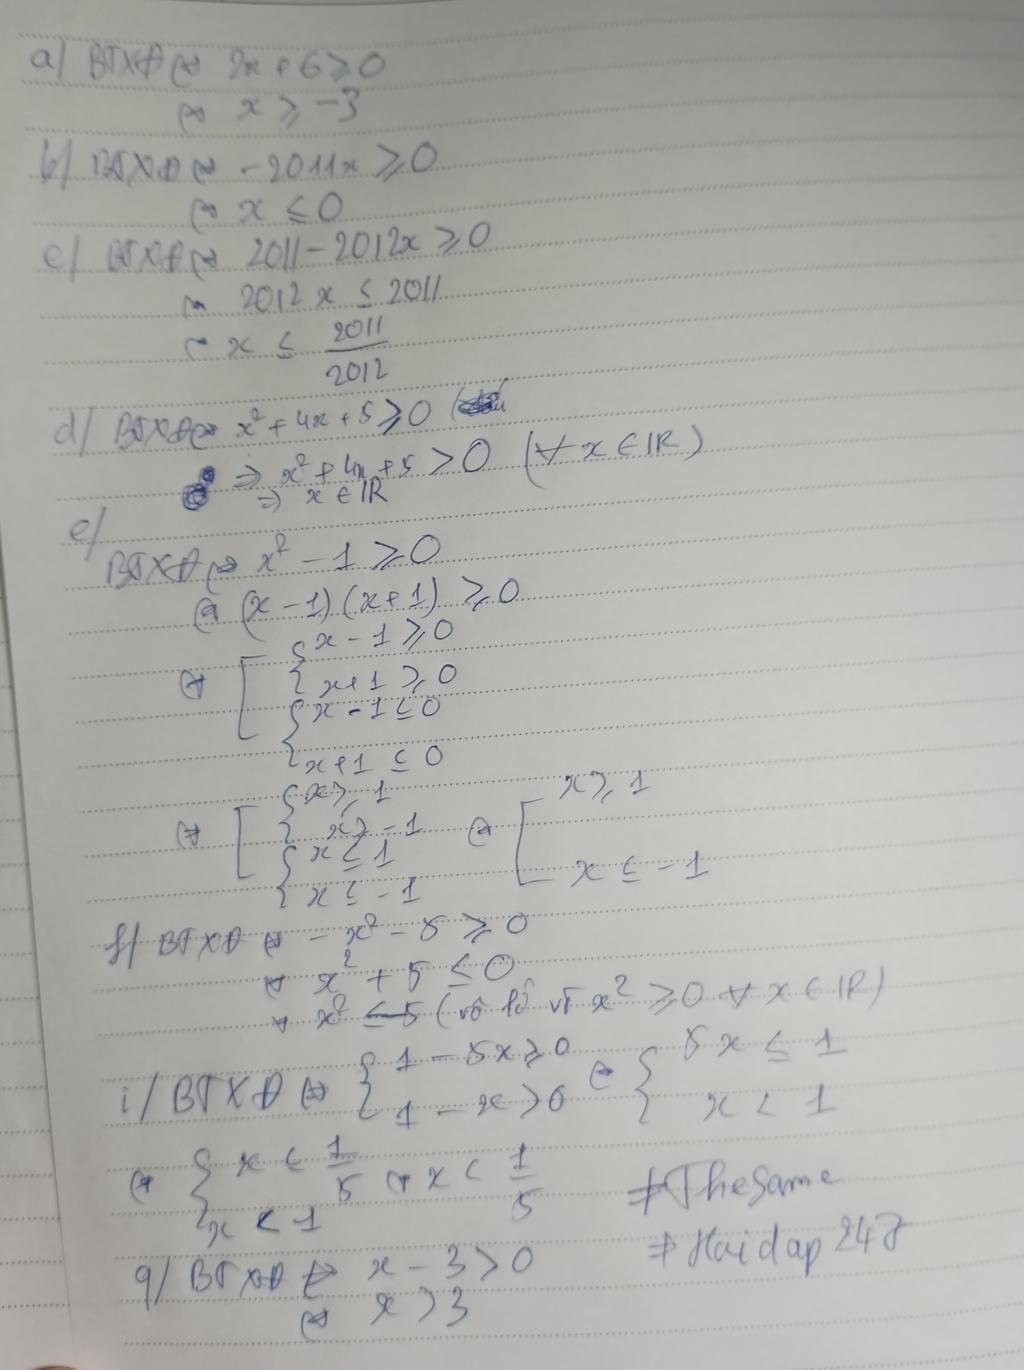 a/ BTXĐ ⇔ 2x + 6 ⩾ 0
⇔ x ⩾ -3
b/ BTXĐ ⇔ -2011x ⩾ 0
⇔ x ≤ 0
c/ BTXĐ ⇔ 2011 - 2012x ⩾ 0
⇔ 2012x ≤ 2011
⇔ x ≤ 2011/2012
d/ BTXĐ ⇔ x² + 4x + 5 ⩾ 0
⇒ x² + 4x + 5 > 0 (∀x ∈ IR)
⇒ x ∈ IR
e/
BTXĐ ⇔ x² - 1 ⩾ 0
⇔ (x - 1)(x + 1) ⩾ 0
⇔ [ { x - 1 ⩾ 0
{ x + 1 ⩾ 0
{ x - 1 ≤ 0
{ x + 1 ≤ 0
⇔ [ { x ⩾ 1
{ x ⩾ -1
{ x ≤ 1
{ x ≤ -1
⇔ [ x ⩾ 1
x ≤ -1
f/ BTXĐ ⇔ -x² - 5 ⩾ 0
⇔ x² + 5 ≤ 0
⇔ x² ≤ -5 (vô lí vì x² ⩾ 0 ∀x ∈ IR)
i/ BTXĐ ⇔ { 1 - 5x ⩾ 0
{ 1 - x > 0
⇔ { 5x ≤ 1
{ x < 1
⇔ { x ≤ 1/5
{ x < 1
⇔ x < 1/5
g/ BTXĐ ⇔ x - 3 > 0
⇔ x > 3
#TheSame
#Hoidap247